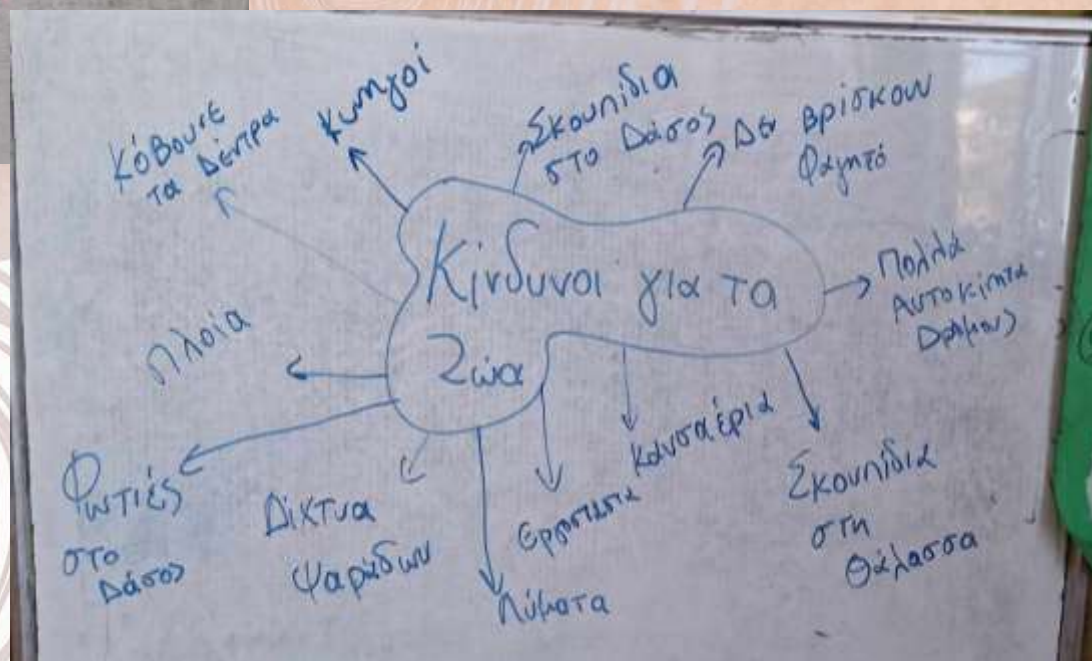 Κίνδυνοι για τα
Ζώα
Κόβουνε
τα Δέντρα
Κυνηγοί
Σκουπίδια
στο Δάσος
Δεν βρίσκουν
Φαγητό
Πολλά
Αυτοκίνητα
Δρόμους
Σκουπίδια
στη
Θάλασσα
Καυσαέρια
Εργοστάσια
Λύματα
Δίκτυα
Ψαράδων
Φωτιές
στο
Δάσος
Πλοία